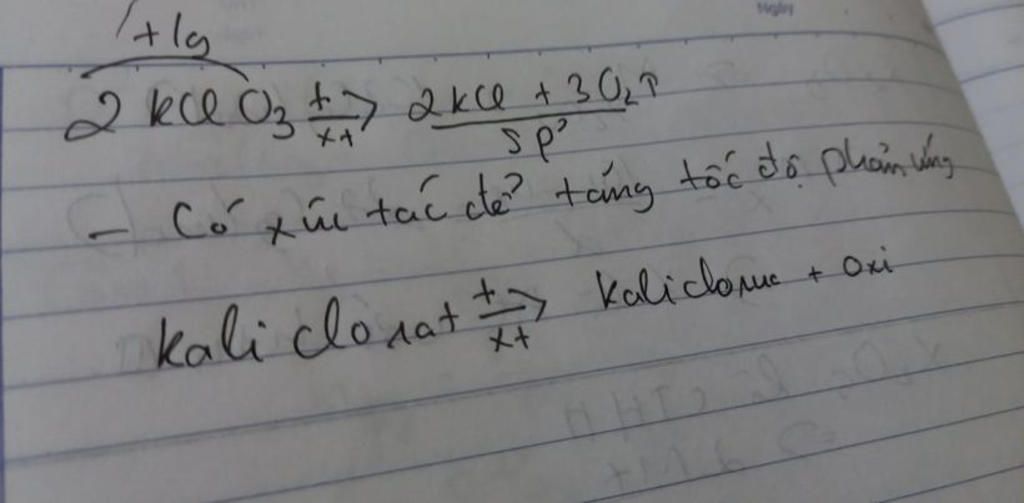 Ngày
+ tg
2 KClO3 t xt → 2KCl + 3O2↑
sp²
- Có xúc tác để tăng tốc độ phản ứng
Kali clorat t xt → kali clorua + oxi